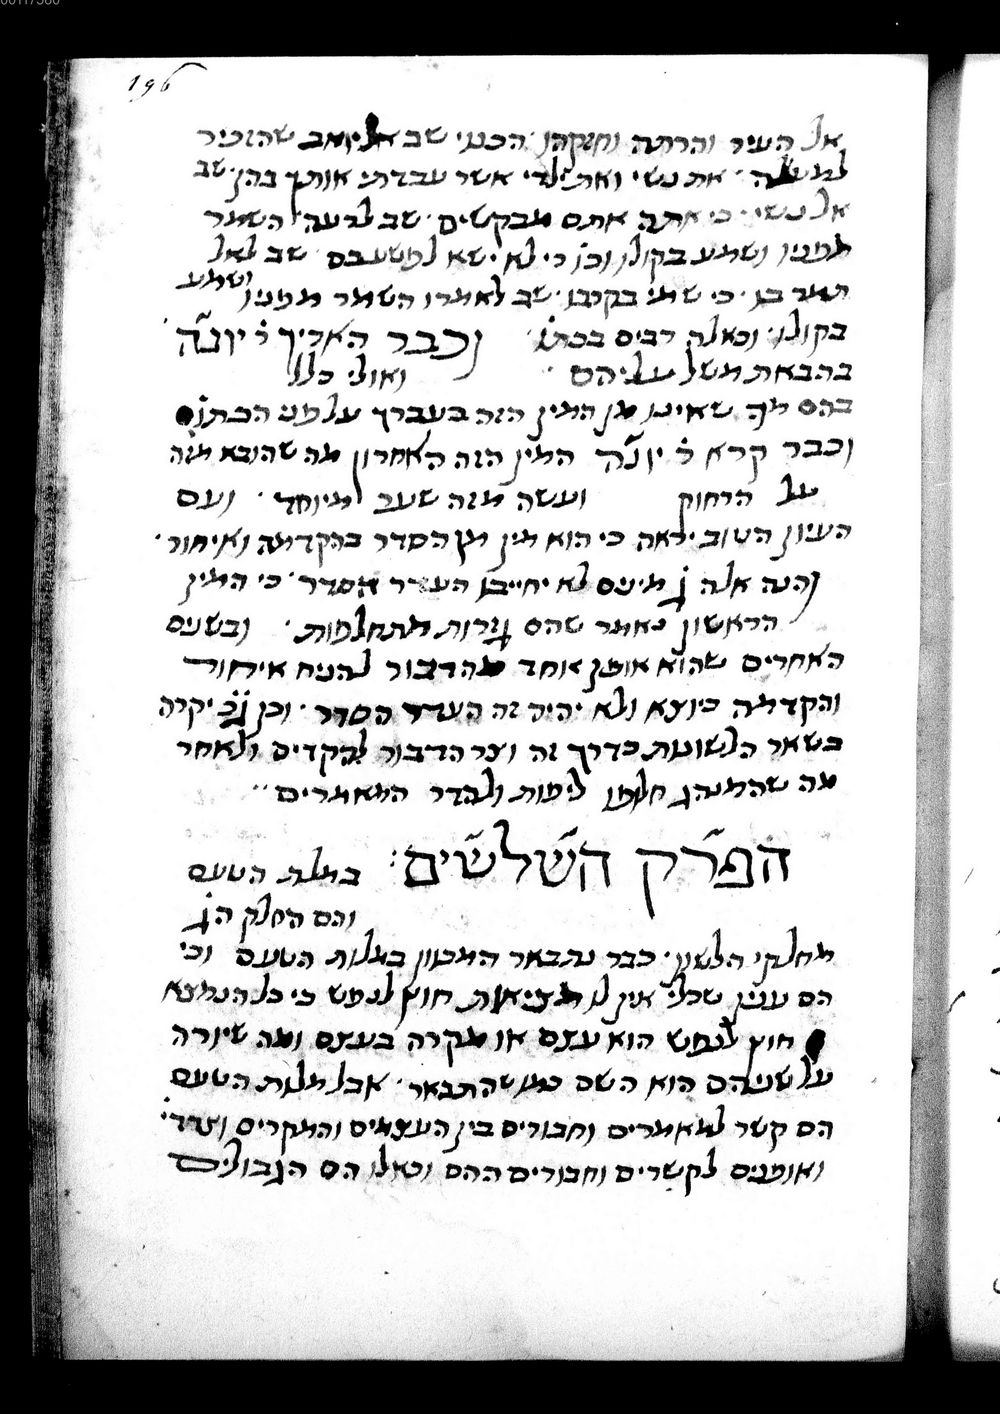 196
אל העיר והרתה וחזקהו הכנוי שב אל יואב שהזכיר
למעלה׃ את נשי ואת ילדי אשר עבדתי אותך בהן שב
אל נשי׃ כי אתה אתם מבקשים׃ שב לרעה השמר
מפניו ושמע בקולו וכו׳ כי לא ישא לפשעכם שב לאל
תמר בו׃ כי שמי בקרבו׃ שב לאמרו השמר מפניו ושמע
בקולו׃ וכאלה רבים בכתו׳ וכבר האריך ר׳ יונה
בהבאת משל עליהם׃ ואולי כלל
בהם מה שאינו מן המין הזה בעברך על מני הכתו׳
וכבר קרא ר׳ יונה המין הזה האחרון מה שהובא מזה
על הרחוק ועשה מזה שער מיוחד׃ ועם
העיון הטוב יראה כי הוא מין מן הסדר בהקדמה ואיחור׃
והנה אלה ג׳ מינים לא יחייבו העדר הסדר׃ כי המין
הראשון נאמר שהם גזרות מתחלפות׃ ובשנים
האחרים שהוא אופן אחד מהדבור להניח איחור
והקדמה כיוצא ולא יהיה זה העדר הסדר׃ וכן ג״כ יקרה
בשאר הלשונות כדרך זה וצר הדבור להקדים ולאחר
מה שהמנהג חלופו ליפות ולהדר המאמרים׃
הפרק השלשים׃ במלת הטעם
והם החלק הג׳
מחלקי הלשון׃ כבר נתבאר המכוון במלות הטעם וכי
הם ענין שכלי אין לו מציאות חוץ לנפש כי כל הנמצא
חוץ לנפש הוא עצם או מקרה בעצם ומה שיורה
על שניהם הוא השם כמו שהתבאר׃ אבל מלות הטעם
הם קשר למאמרים וחבורים בין העצמים והמקרים וצדדי׳
ואופנים לקשרים וחבורים ההם וכאלו הם הגבולים